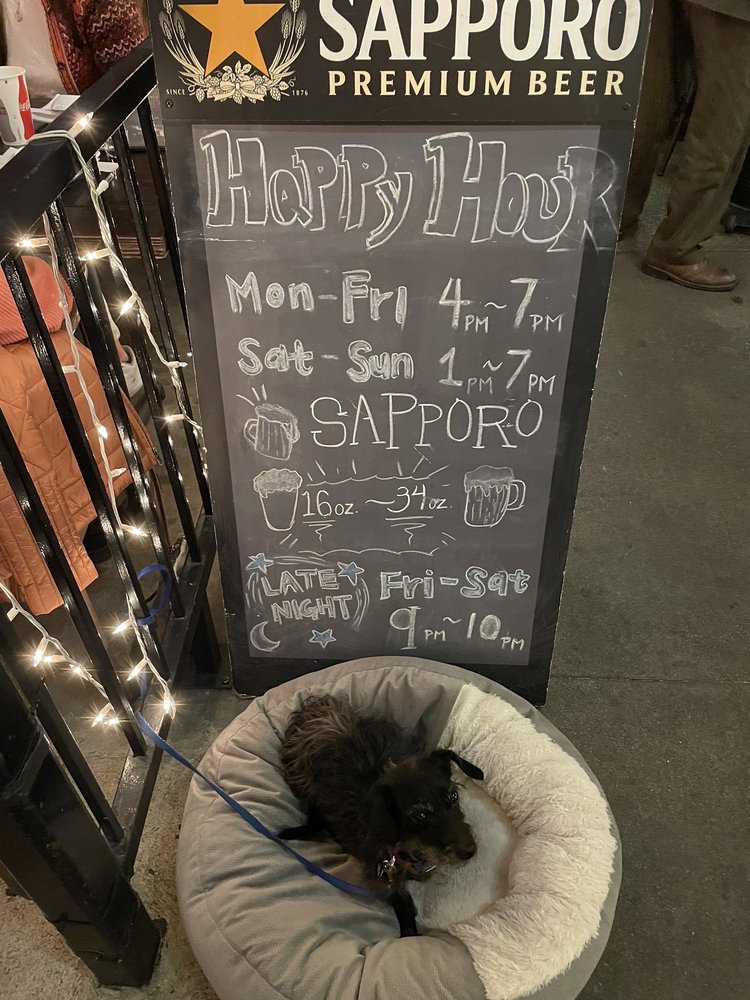 SAPPORO
SINCE 1876
PREMIUM BEER
HAPPy HOUR
Mon-Fri 4PM~7PM
Sat-Sun 1PM~7PM
SAPPORO
16oz. ~34oz.
LATE NIGHT Fri-Sat
9PM~10PM